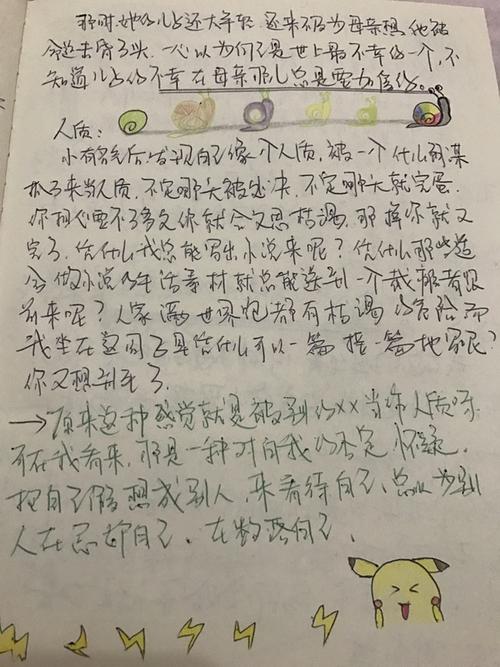 那时她的儿子还太年轻,还来不及为母亲想,他被
命运击昏了头,一心以为自己是世上最不幸的一个,不
知道儿子的不幸在母亲那儿总是要加倍的。
人质:
小有名气后发现自己像个人质,被一个什么阴谋
抓了来当人质,不定哪天被处决,不定哪天就完蛋。
你担心要不了多久你就会文思枯竭,那样你就又
完了。凭什么我总能写出小说来呢?凭什么那些适
合做小说的生活素材就总能送到一个截瘫者跟
前来呢?人家满世界跑都有枯竭的危险,而
我坐在这园子里凭什么可以一篇接一篇地写呢?
你又想到死了。
→原来这种感觉就是被别的××当作人质呀
可在我看来,那是一种对自我的否定,怀疑,
把自己假想成别人,来看待自己、总以为别
人在忌妒自己,在数落自己,